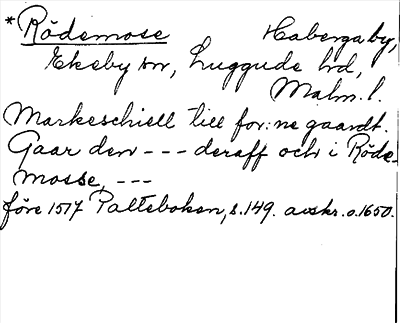 *Rödemose Habergaby,
Ekeby sn, Luggude hd,
Malm. l.
Markeschiell till for:ne gaardt.
Gaar den --- deraff och i Röde-
mosse, ---
före 1517 Palteboken, s. 149. avskr. o. 1650.